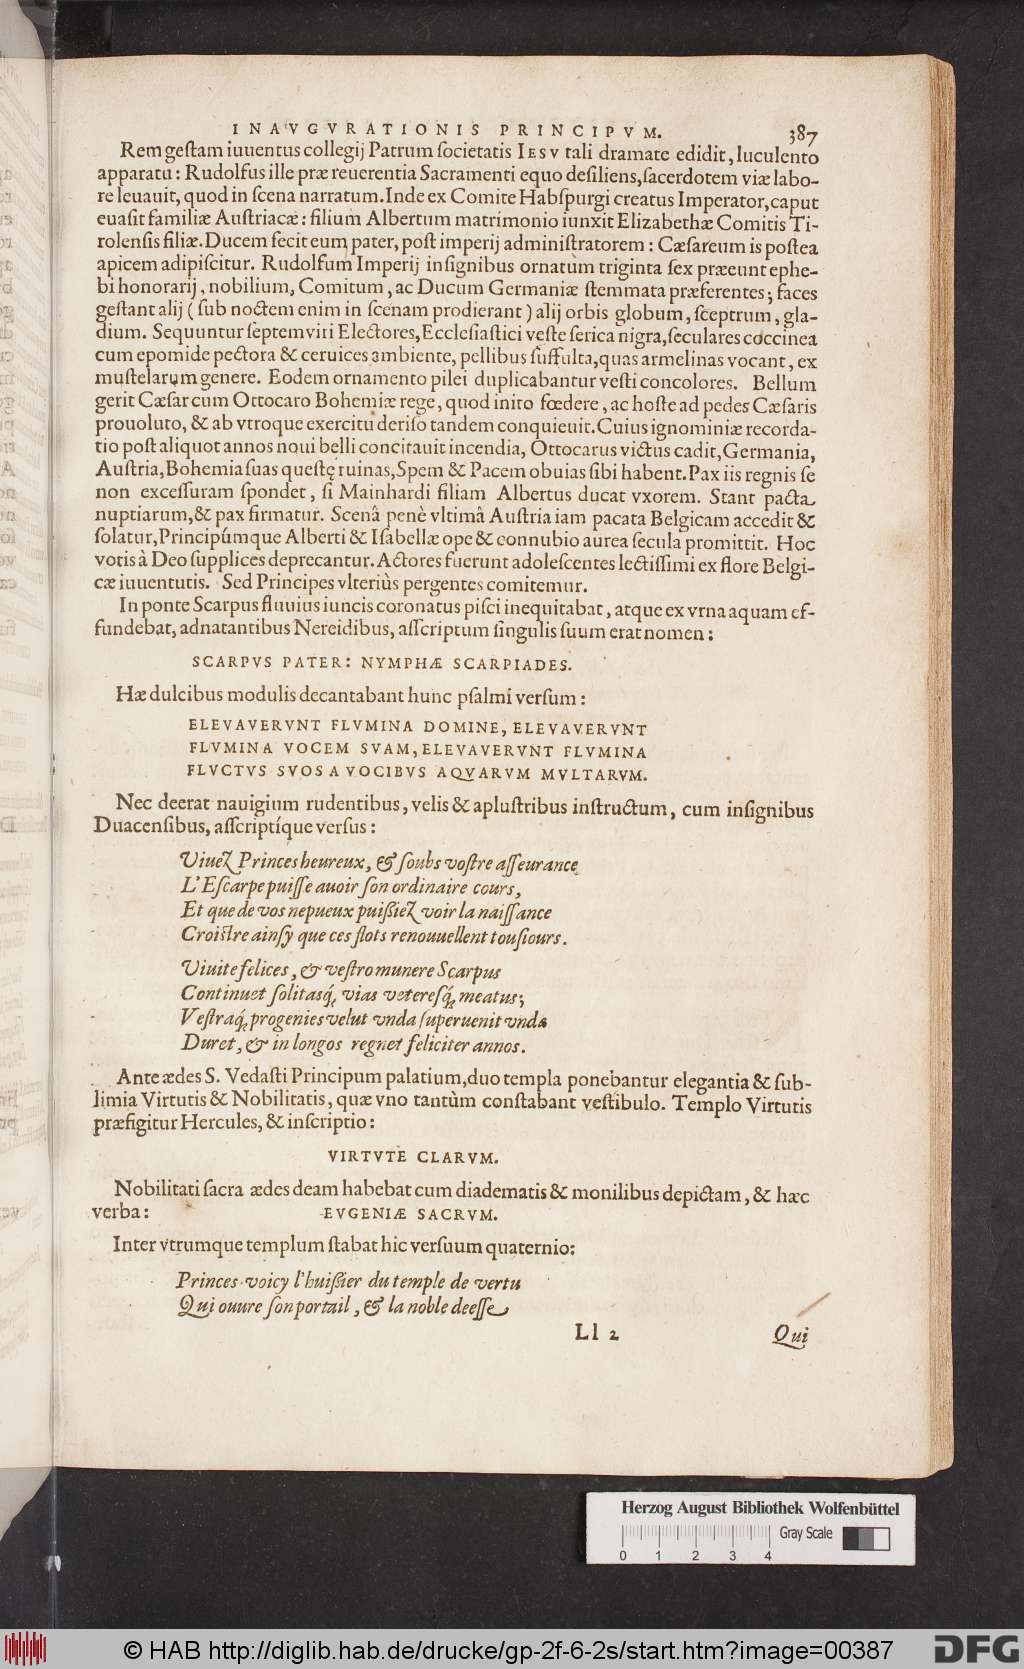 INAVGVRATIONIS PRINCIPVM. 387
Rem geſtam iuuentus collegij Patrum ſocietatis IESV tali dramate edidit, luculento
apparatu: Rudolfus ille præ reuerentia Sacramenti equo deſiliens, ſacerdotem viæ labo-
re leuauit, quod in ſcena narratum. Inde ex Comite Habſpurgi creatus Imperator, caput
euaſit familiæ Auſtriacæ: filium Albertum matrimonio iunxit Elizabethæ Comitis Ti-
rolenſis filiæ. Ducem fecit eum pater, poſt imperij adminiſtratorem: Cæſareum is poſtea
apicem adipiſcitur. Rudolfum Imperij inſignibus ornatum triginta ſex præeunt ephe-
bi honorarij, nobilium, Comitum, ac Ducum Germaniæ ſtemmata præferentes; faces
geſtant alij (ſub noctem enim in ſcenam prodierant) alij orbis globum, ſceptrum, gla-
dium. Sequuntur ſeptemviri Electores, Eccleſiaſtici veſte ſerica nigra, ſeculares coccinea
cum epomide pectora & ceruices ambiente, pellibus ſuffulta, quas armelinas vocant, ex
muſtelarum genere. Eodem ornamento pilei duplicabantur veſti concolores. Bellum
gerit Cæſar cum Ottocaro Bohemiæ rege, quod inito fœdere, ac hoſte ad pedes Cæſaris
prouoluto, & ab vtroque exercitu deriſo tandem conquieuit. Cuius ignominiæ recorda-
tio poſt aliquot annos noui belli concitauit incendia, Ottocarus victus cadit, Germania,
Auſtria, Bohemia ſuas queſtę ruinas, Spem & Pacem obuias ſibi habent. Pax iis regnis ſe
non exceſſuram ſpondet, ſi Mainhardi filiam Albertus ducat vxorem. Stant pacta
nuptiarum, & pax firmatur. Scenâ penè vltimâ Auſtria iam pacata Belgicam accedit &
ſolatur, Principúmque Alberti & Iſabellæ ope & connubio aurea ſecula promittit. Hoc
votis à Deo ſupplices deprecantur. Actores fuerunt adoleſcentes lectiſſimi ex flore Belgi-
cæ iuuentutis. Sed Principes vlteriùs pergentes comitemur.
In ponte Scarpus fluuius iuncis coronatus piſci inequitabat, atque ex vrna aquam ef-
fundebat, adnatantibus Nereidibus, aſſcriptum ſingulis ſuum erat nomen:
SCARPVS PATER: NYMPHÆ SCARPIADES.
Hæ dulcibus modulis decantabant hunc pſalmi verſum:
ELEVAVERVNT FLVMINA DOMINE, ELEVAVERVNT
FLVMINA VOCEM SVAM, ELEVAVERVNT FLVMINA
FLVCTVS SVOS A VOCIBVS AQVARVM MVLTARVM.
Nec deerat nauigium rudentibus, velis & apluſtribus inſtructum, cum inſignibus
Duacenſibus, aſſcriptíque verſus:
Viuez Princes heureux, & ſoubs voſtre aſſeurance
L'Eſcarpe puiſſe auoir ſon ordinaire cours,
Et que de vos nepueux puißiez voir la naiſſance
Croiſtre ainſy que ces flots renouuellent touſiours.
Viuite felices, & veſtro munere Scarpus
Continuet ſolitasq́; vias veteresq́; meatus;
Veſtraq́; progenies velut vnda ſuperuenit vnda
Duret, & in longos regnet feliciter annos.
Ante ædes S. Vedaſti Principum palatium, duo templa ponebantur elegantia & ſub-
limia Virtutis & Nobilitatis, quæ vno tantùm conſtabant veſtibulo. Templo Virtutis
præfigitur Hercules, & inſcriptio:
VIRTVTE CLARVM.
Nobilitati ſacra ædes deam habebat cum diadematis & monilibus depictam, & hæc
verba: EVGENIÆ SACRVM.
Inter vtrumque templum ſtabat hic verſuum quaternio:
Princes voicy l'huißier du temple de vertu
Qui ouure ſon portail, & la noble deeſſe
Ll 2 Qui
Herzog August Bibliothek Wolfenbüttel
Gray Scale
0 1 2 3 4
© HAB http://diglib.hab.de/drucke/gp-2f-6-2s/start.htm?image=00387 DFG